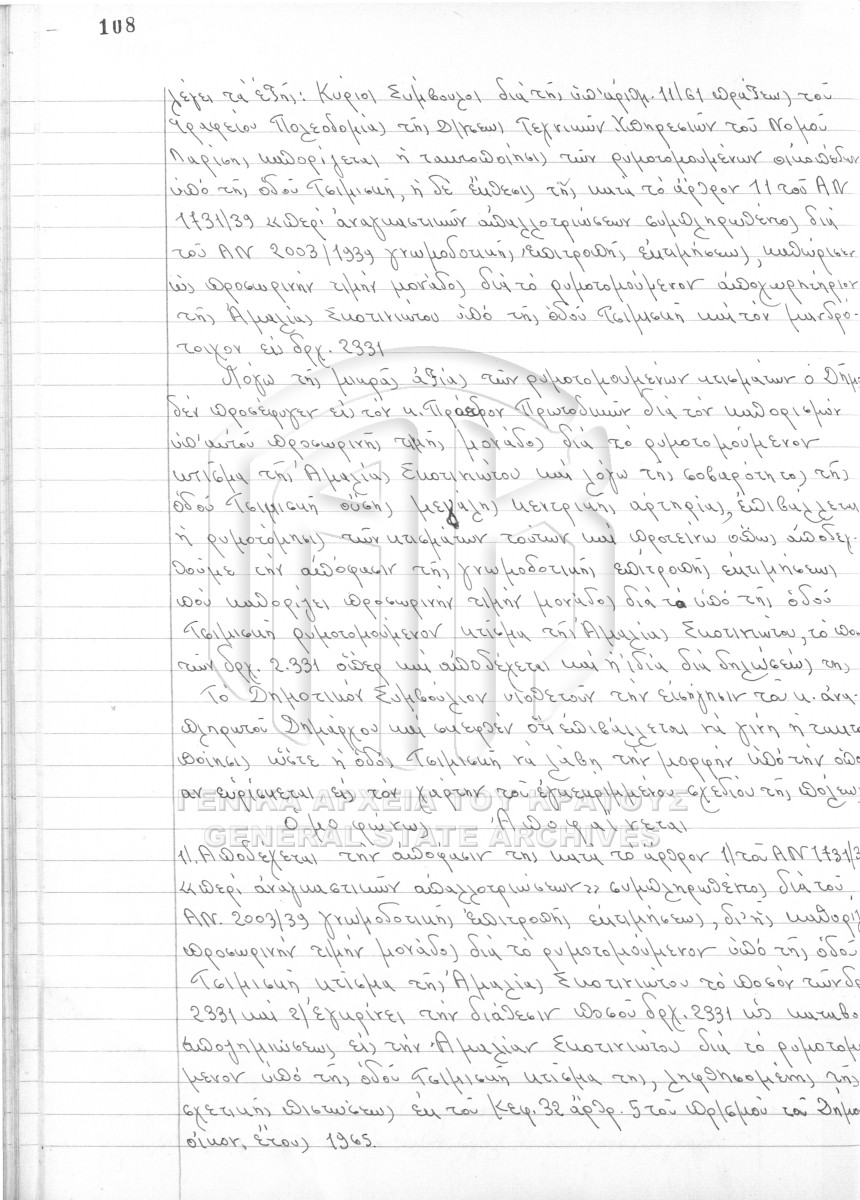 108
λέγει τὰ ἑξῆς: Κύριοι Σύμβουλοι διὰ τῆς ὑπ' ἀριθμ. 11/61 πράξεως τοῦ
Γραφείου Πολεοδομίας τῆς Δ/νσεως Τεχνικῶν Ὑπηρεσιῶν τοῦ Νομοῦ
Λαρίσης καθορίζεται ἡ τακτοποίησις τῶν ρυμοτομουμένων οἰκοπέδων
ὑπὸ τῆς ὁδοῦ Τσιμισκῆ, ἡ δὲ ἔκθεσις τῆς κατὰ τὸ ἄρθρον 11 τοῦ ΑΝ
1731/39 «περὶ ἀναγκαστικῶν ἀπαλλοτριώσεων συμπληρωθέντος διὰ
τοῦ ΑΝ 2003/1939 γνωμοδοτικῆς ἐπιτροπῆς ἐκτιμήσεως, καθώρισεν
ὡς προσωρινὴν τιμὴν μονάδος διὰ τὸ ρυμοτομούμενον ἀποχωρητήριον
τῆς Ἀμαλίας Σκοτινιώτου ὑπὸ τῆς ὁδοῦ Τσιμισκῆ καὶ τὸν μανδρό-
τοιχον εἰς δρχ. 2331
Λόγω τῆς μικρᾶς ἀξίας τῶν ρυμοτομουμένων κτισμάτων ὁ Δῆμο
δὲν προσέφυγεν εἰς τὸν κ. Πρόεδρον Πρωτοδικῶν διὰ τὸν καθορισμὸν
ὑπ' αὐτοῦ προσωρινῆς τιμῆς μονάδος διὰ τὸ ρυμοτομούμενον
κτίσμα τῆς Ἀμαλίας Σκοτινιώτου καὶ λόγω τῆς σοβαρότητος τῆς
ὁδοῦ Τσιμισκῆ οὔσης μεγάλης κεντρικῆς ἀρτηρίας, ἐπιβάλλεται
ἡ ρυμοτόμησις τῶν κτισμάτων τούτων καὶ προτείνω ὅπως ἀποδεχ-
θοῦμε τὴν ἀπόφασιν τῆς γνωμοδοτικῆς ἐπιτροπῆς ἐκτιμήσεως
ποὺ καθορίζει προσωρινὴν τιμὴν μονάδος διὰ τὸ ὑπὸ τῆς ὁδοῦ
Τσιμισκῆ ρυμοτομούμενον κτίσμα τῆς Ἀμαλίας Σκοτινιώτου, τὸ πο
τῶν δρχ. 2.331 ὅπερ καὶ ἀποδέχεται καὶ ἡ ἰδία διὰ δηλώσεώς της
Τὸ Δημοτικὸν Συμβούλιον υἱοθετοῦν τὴν εἰσήγησιν τοῦ κ. ἀνα-
πληρωτοῦ Δημάρχου καὶ σκεφθὲν ὅτι ἐπιβάλλεται νὰ γίνη ἡ τακτο
ποίησις ὥστε ἡ ὁδὸς Τσιμισκῆ νὰ λάβη τὴν μορφὴν ὑπὸ τὴν ὁποί
αν εὑρίσκεται εἰς τὸν χάρτην τοῦ ἐγκεκριμμένου σχεδίου τῆς πόλεως
ΓΕΝΙΚΑ ΑΡΧΕΙΑ ΤΟΥ ΚΡΑΤΟΥΣ
Ὁμοφώνως Ἀποφαίνεται
GENERAL STATE ARCHIVES
1/. Ἀποδέχεται τὴν ἀπόφασιν τῆς κατὰ τὸ ἄρθρον 11 τοῦ ΑΝ 1731/3
«περὶ ἀναγκαστικῶν ἀπαλλοτριώσεων» συμπληρωθέντος διὰ τοῦ
ΑΝ. 2003/39 γνωμοδοτικῆς ἐπιτροπῆς ἐκτιμήσεως, δι' ἧς καθορίζ
προσωρινὴν τιμὴν μονάδος διὰ τὸ ρυμοτομούμενον ὑπὸ τῆς ὁδοῦ
Τσιμισκῆ κτίσμα τῆς Ἀμαλίας Σκοτινιώτου τὸ ποσὸν τῶν δρ
2331 καὶ 2/ ἐγκρίνει τὴν διάθεσιν ποσοῦ δρχ. 2331 ὡς καταβο
ἀποζημιώσεως εἰς τὴν Ἀμαλίαν Σκοτινιώτου διὰ τὸ ρυμοτομού
μενον ὑπὸ τῆς ὁδοῦ Τσιμισκῆ κτίσμα της, ληφθησομένης τῆς
σχετικῆς πιστώσεως ἐκ τοῦ Κεφ. 32 ἄρθρ. 5 τοῦ πρ/σμοῦ τοῦ Δήμο
οἰκον. ἔτους 1965.